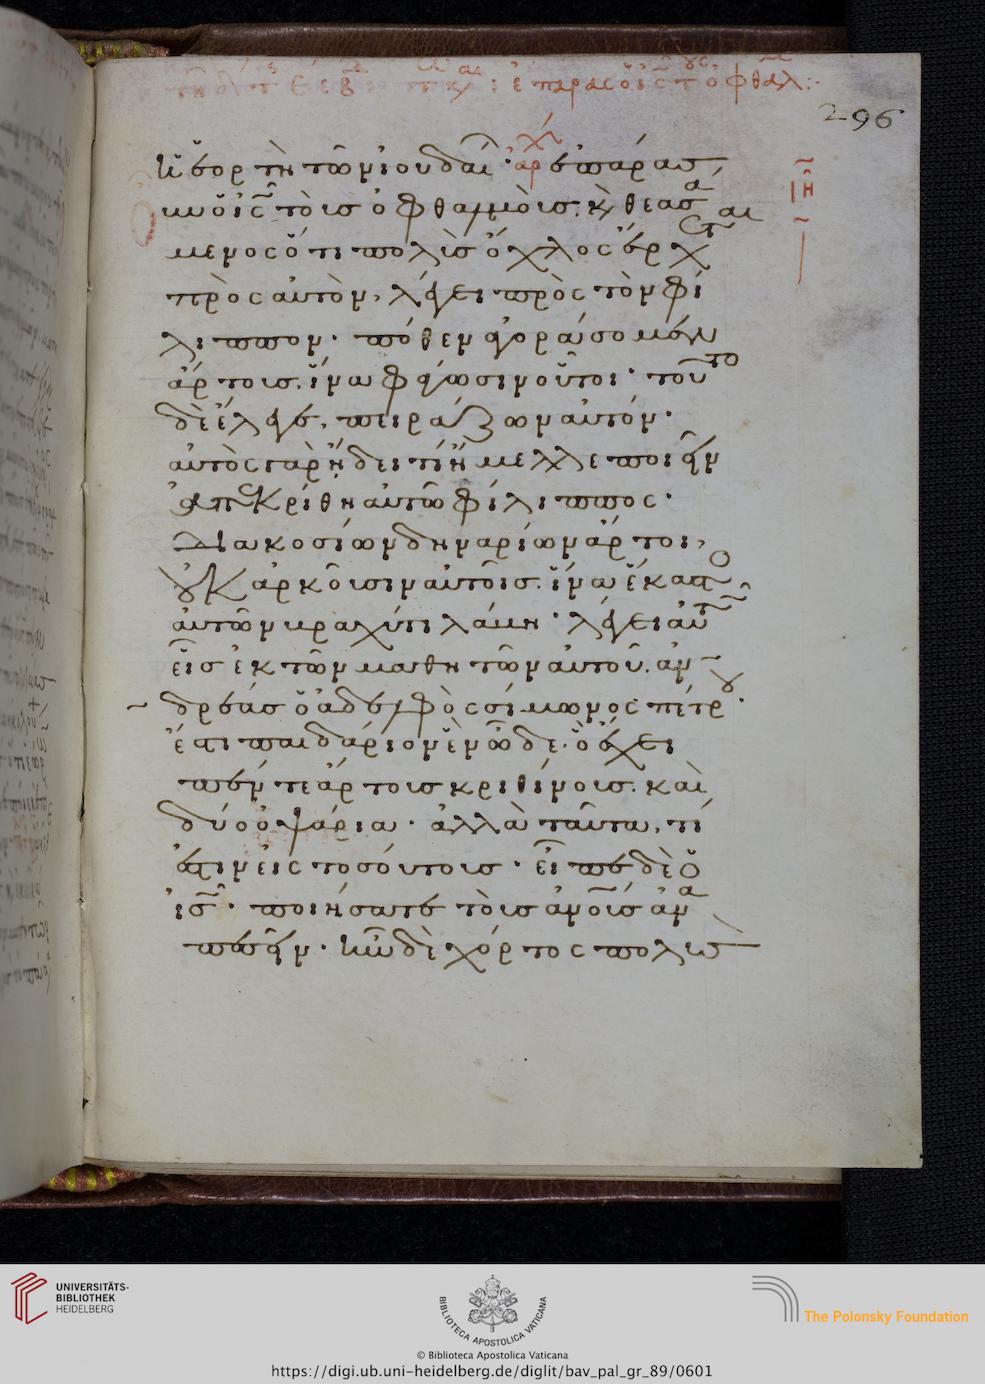 ἐπάρας ὁ ἰς τ ὀφθαλ:·
296
ἡ ἑορτὴ τῶν ἰουδαί· ἀρ ἐπάρασ
κυν ὁ ἰς τοὺσ ὀφθαλμοὺσ. κ θεασα
μενος ὅτι πολὺσ ὄχλος ἔρχεται
πρὸς αὐτὸν, λέγει πρὸς τὸν φί
λιππον· πόθεν ἀγοράσομεν
ἄρτουσ. ἵνα φάγωσιν οὗτοι· τοῦτο
δὲ ἔλεγε, πειράζων αὐτόν·
αὐτὸς γὰρ ἤδει τί ἤμελλε ποιεῖν
ἀπεκρίθη αὐτῶ φίλιππος·
Διακοσίων δηναρίων ἄρτοι,
οὐκ ἀρκοῦισιν αὐτοῖσ. ἵνα ἕκαστο
αὐτῶν βραχύ τι λάβη· λέγει αὐτῶ
εἷσ ἐκ τῶν μαθητῶν αὐτοῦ. ἀν
δρέασ ὁ ἀδελφὸς σίμωνος πέτρου·
ἔστι παιδάριον ἓν ὧδε· ὃ ἔχει
πέντε ἄρτουσ κριθίνουσ. καὶ
δύο ὀψάρια· ἀλλὰ ταῦτα, τί
ἐστιν εἰς τοσούτουσ· εἶπε δὲ ὁ
ἰς· ποιήσατε τοὺσ ἀνουσ ἀνα
πεσεῖν· ἦν δὲ χόρτος πολὺσ
UNIVERSITÄTS-
BIBLIOTHEK
HEIDELBERG
BIBLIOTECA APOSTOLICA VATICANA
The Polonsky Foundation
© Biblioteca Apostolica Vaticana
https://digi.ub.uni-heidelberg.de/diglit/bav_pal_gr_89/0601